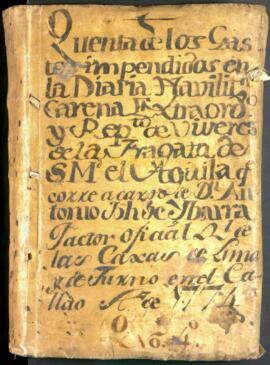 Quenta de los Gas
tos impendidos en
la Diaria, Havilit.on
Carena Extraord.
y Rep.to de Viveres
de la Fragata de
S M.e el Aguila q
corre a cargo de D.n An
tonio Jph de Ybarra
Factor Oficial R.l de
las Caxas de Lima
y de Turno en el Ca
llao A.o de 1774
N.o 4.o